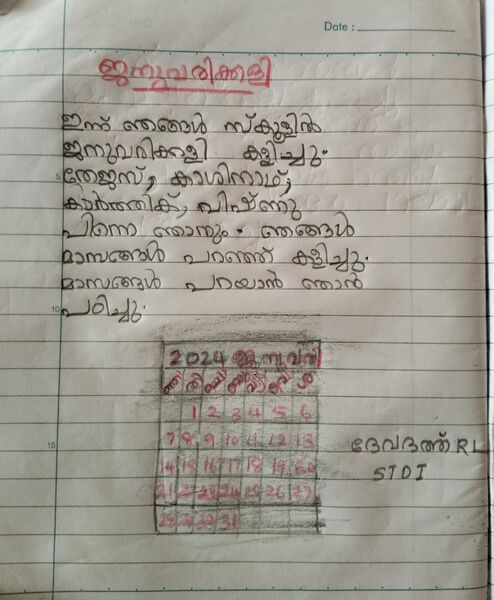 Date :
ജനുവരിക്കളി
ഇന്ന് ഞങ്ങൾ സ്കൂളിൽ
ജനുവരിക്കളി കളിച്ചു.
5
തേജസ്, കാശിനാഥ്,
കാർത്തിക്, വിഷ്ണു
പിന്നെ ഞാനും. ഞങ്ങൾ
മാസങ്ങൾ പറഞ്ഞ് കളിച്ചു.
മാസങ്ങൾ പറയാൻ ഞാൻ
10
പഠിച്ചു.
2024 ജനുവരി
ഞ തി ചൊ ബു വ്യാ വെ ശ
1 2 3 4 5 6
7 8 9 10 11 12 13
15
ദേവദത്ത് R L
14 15 16 17 18 19 20
STD I
21 22 23 24 25 26 27
28 29 30 31